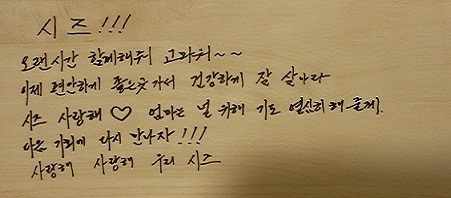 시즈!!!
오랜시간 함께해줘서 고마워~~
이제 편안하게 좋은곳가서 건강하게 잘 살아라
시즈 사랑해 ♡ 엄마는 널 위해 기도 열심히 해줄께.
다음 기회에 다시 만나자!!!
사랑해 사랑해 우리 시즈